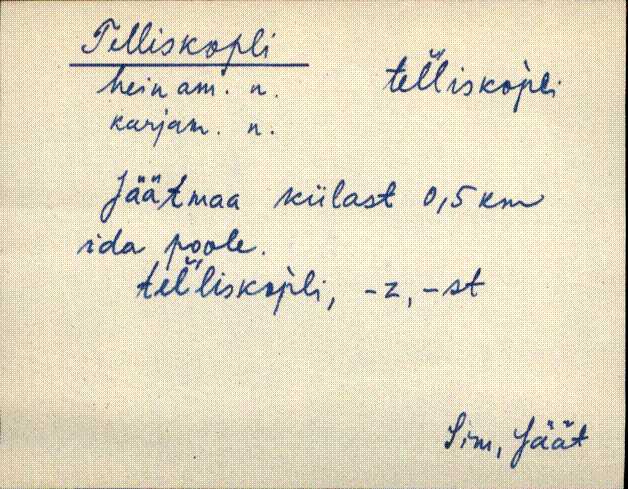 Telliskopli
heinam. n.
karjam. n.
tel̆liskop̀li
Jäätmaa külast 0,5 km
ida poole.
tel̆liskop̀li, -z, -st
Sim, Jäät